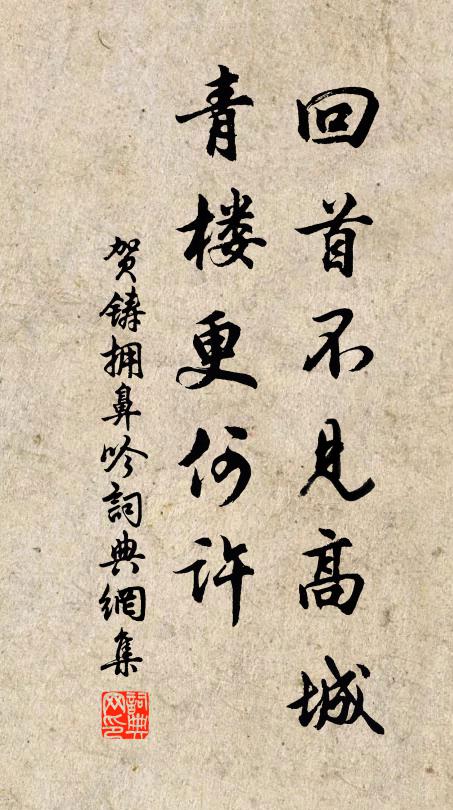 回首不见高城
青楼更何许
贺铸拥鼻吟詞典網集
詞典网印